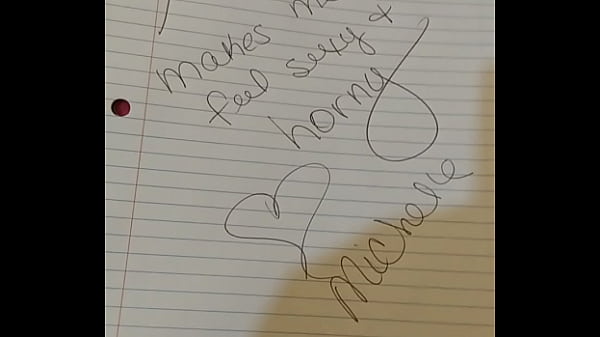 makes
feel sexy &
horny
Michele